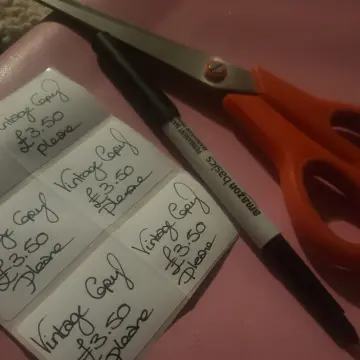 Vintage Copy
£3.50
please
Vintage Copy
£3.50
Please
Copy
£3.50
Please
Vintage Copy
£3.50
Please
Vintage Copy
£3.50
Please
amazon basics